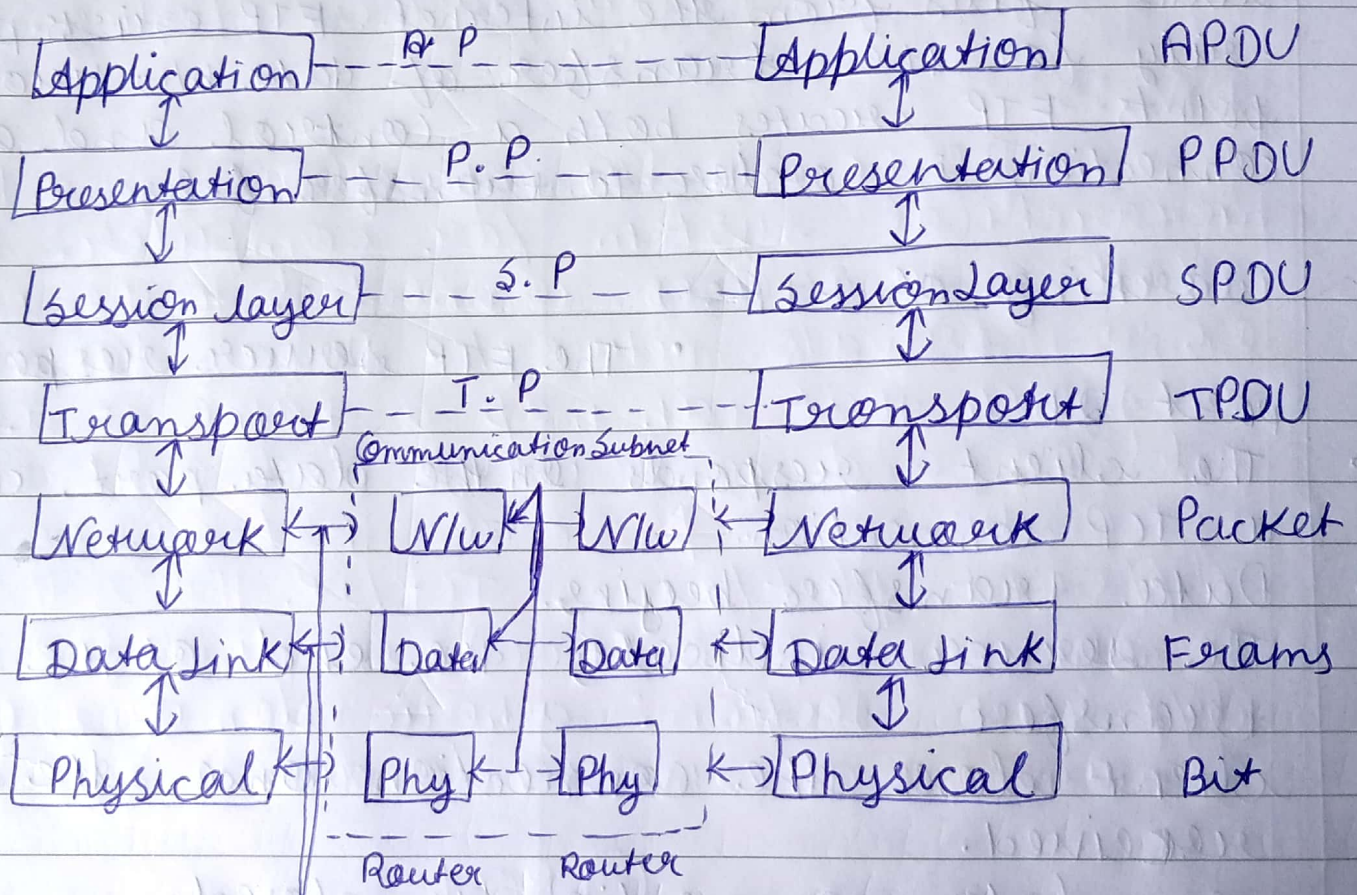 Application A P Application APDU
Presentation P. P. Presentation PPDU
Session layer S. P Session Layer SPDU
Transport T. P Transport TPDU
Communication Subnet
Network N/w N/w Network Packet
Data Link Data Data Data Link Frams
Physical Phy Phy Physical Bit
Router Router